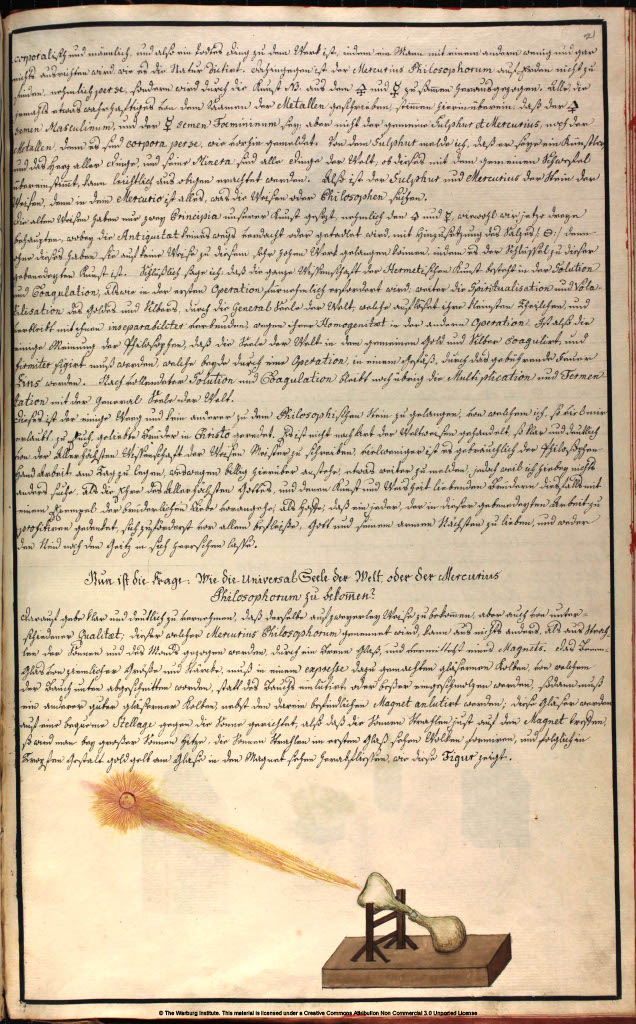 21
corporalisch und männlich, und also ein todtes Ding zu dem Werk ist, indem ein Mann mit einem andern wenig und gar
nichts ausrichten wird, wie es die Natur dictirt. Dahingegen ist der Mercurius Philosophorum auf Erden nicht zu
finden, nehmlich perse, sondern wird durch die Kunst aus dem 🜍 und ☿ zusammen herausgezogen. Alle, die
jemahls etwas wahrhaftiges von dem Saamen der Metallen geschrieben, stimmen hierin überein, daß der 🜍
semen Masculinum, und der ☿ semen Foemininum sey, aber nicht der gemeine Sulphur et Mercurius, noch der
Metallen, denn es sind corpora perse, wie vorhin gemeldet. Von dem Sulphur melde ich, daß er seye ein Künstler
und das Herz aller Dinge, und seine Minera sind alle Dinge der Welt, ob dieses mit dem gemeinen Schwefel
übereinstimmt, kann leichtlich aus obigen erachtet werden. Also ist der Sulphur und Mercurius der Stein der
Weisen, denn in dem Mercurio ist alles, was die Weisen oder Philosophen suchen.
Die alten Weisen haben nur zwey Principia unserer Kunst gesezt, nehmlich den 🜍 und ☿, wiewohl wir jezo dreye
behaupten, wobey die Antiquitat keines wegs veracht oder getadlet wird, mit Hinzusetzung des Salzes denn
ohne dieses haben sie auf keine Weise zu diesem sehr hohen Werk gelangen können, indem es der Schlüssel zu dieser
gebenedeyten Kunst ist. Schlüßlich sage ich, daß die ganze Wissenschaft der Hermetischen Kunst bestehe in der Solution
und Coagulation, als wie in der ersten Operation fürnehmlich erfordert wird, weiter die Spiritualisation und Vola-
tilisation des Goldes und Silbers, durch die General Seele der Welt, welche auflößet ihre kleinsten Theilchen und
verbleibt mit ihnen inseparabiliter verbunden, wegen ihrer Homogenitæt in der andern Operation. Ist also die
einige Meinung der Philosophen, daß die Seele der Welt in dem gemeinen Gold und Silber Coagulirt, und
firmiter figirt muß werden, welche beyde durch eine Operation, in einem Gefäß, durch das gebührende Feuer
Eins werden. Nach vollendeter Solution und Coagulation bleibt noch übrig die Multiplication und Fermen
tation mit der General Seele der Welt.
Dieses ist der einige Weeg und kein anderer zu dem Philosophischen Stein zu gelangen, von welchem ich, so viel mir
erlaubt, zu Euch, geliebte Brüder in Christo geredet. Es ist nicht nach Art der Weltweisen gehandelt, so klar und deutlich
von der Allerhöchsten Wissenschaft der Weisen Meister zu schreiben, vielweniger ist es gebräuchlich der Philosophen
Hand Arbeit am Tag zu legen, deswegen billig hierüber anstehe, etwas weiter zu melden, jedoch weil ich hierbey nichts
anders suche, als die Ehre des Allerhöchsten Gottes, und denen Kunst und Warheit liebenden Brüdern desfalls mit
einem Exempel der brüderlichen Liebe vorangehe; als hoffe, daß ein jeder, der in dieser gebenedeyten Arbeit zu
profitiren gedenket, sich zuförderst vor allem befleisse, Gott und seinem armen Nächsten zu lieben, und weder
den Neid noch den Geitz in sich herrschen lasse.
Nun ist die Frage: Wie die Universal Seele der Welt, oder der Mercurius
Philosophorum zu bekomen?
Darauf gebe klar und deutlich zu vernehmen, daß derselbe auf zweyerley Weise zu bekommen, aber auch von unter-
schiedener Qualitæt; dieser welcher Mercurius Philosophorum genennet wird, kann aus nichts anders, als aus Strah-
len der Sonnen und des Monds gezogen werden, durch ein Brenn Glaß, und vermittelst eines Magnets. Das Brenn-
Glas von ziemlicher Größe und Stärcke, muß in einem expresse dazu gemachten gläsernen Kolben, von welchem
der Bauch unten abgeschnitten worden, statt des Bauchs einlutirt oder besser eingeschmolzen werden, sodann muß
ein anderer guter gläserner Kolben, nebst den darein befindlichen Magnet anlutirt werden; diese Gläser werden
auf eine bequeme Stellage gegen die Sonne gerichtet, also daß die Sonnen Strahlen just auf den Magnet treffen,
so wird man bey großer Sonnen Hitze, die Sonnen Strahlen im ersten Glaß sehen Wolken formiren, und folglich in
Tropfen Gestalt gold gelb am Glase in den Magnet sehen herabfliessen, wie diese Figur zeigt.
© The Warburg Institute. This material is licensed under a Creative Commons Attribution Non Commercial 3.0 Unported License